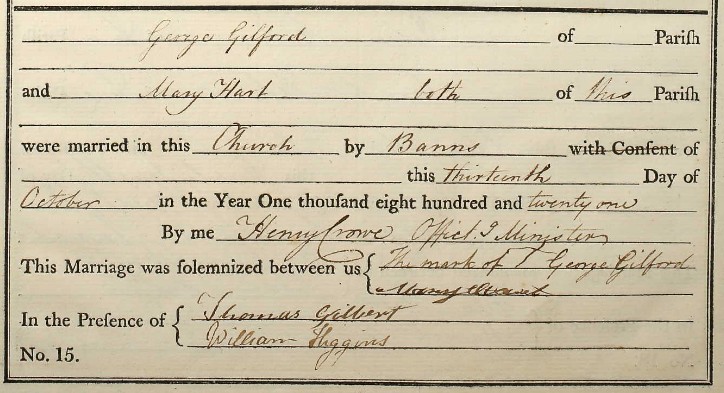 George Gilford of Pariſh
and Mary Hart both of this Pariſh
were married in this Church by Banns with Conſent of
this thirteenth Day of
October in the Year One thouſand eight hundred and twenty one
By me Henry Crowe Offict.g Minister
This Marriage was ſolemnized between us { The mark of T George Gilford
Mary
In the Preſence of { Thomas Gilbert
William Higgins
No. 15.